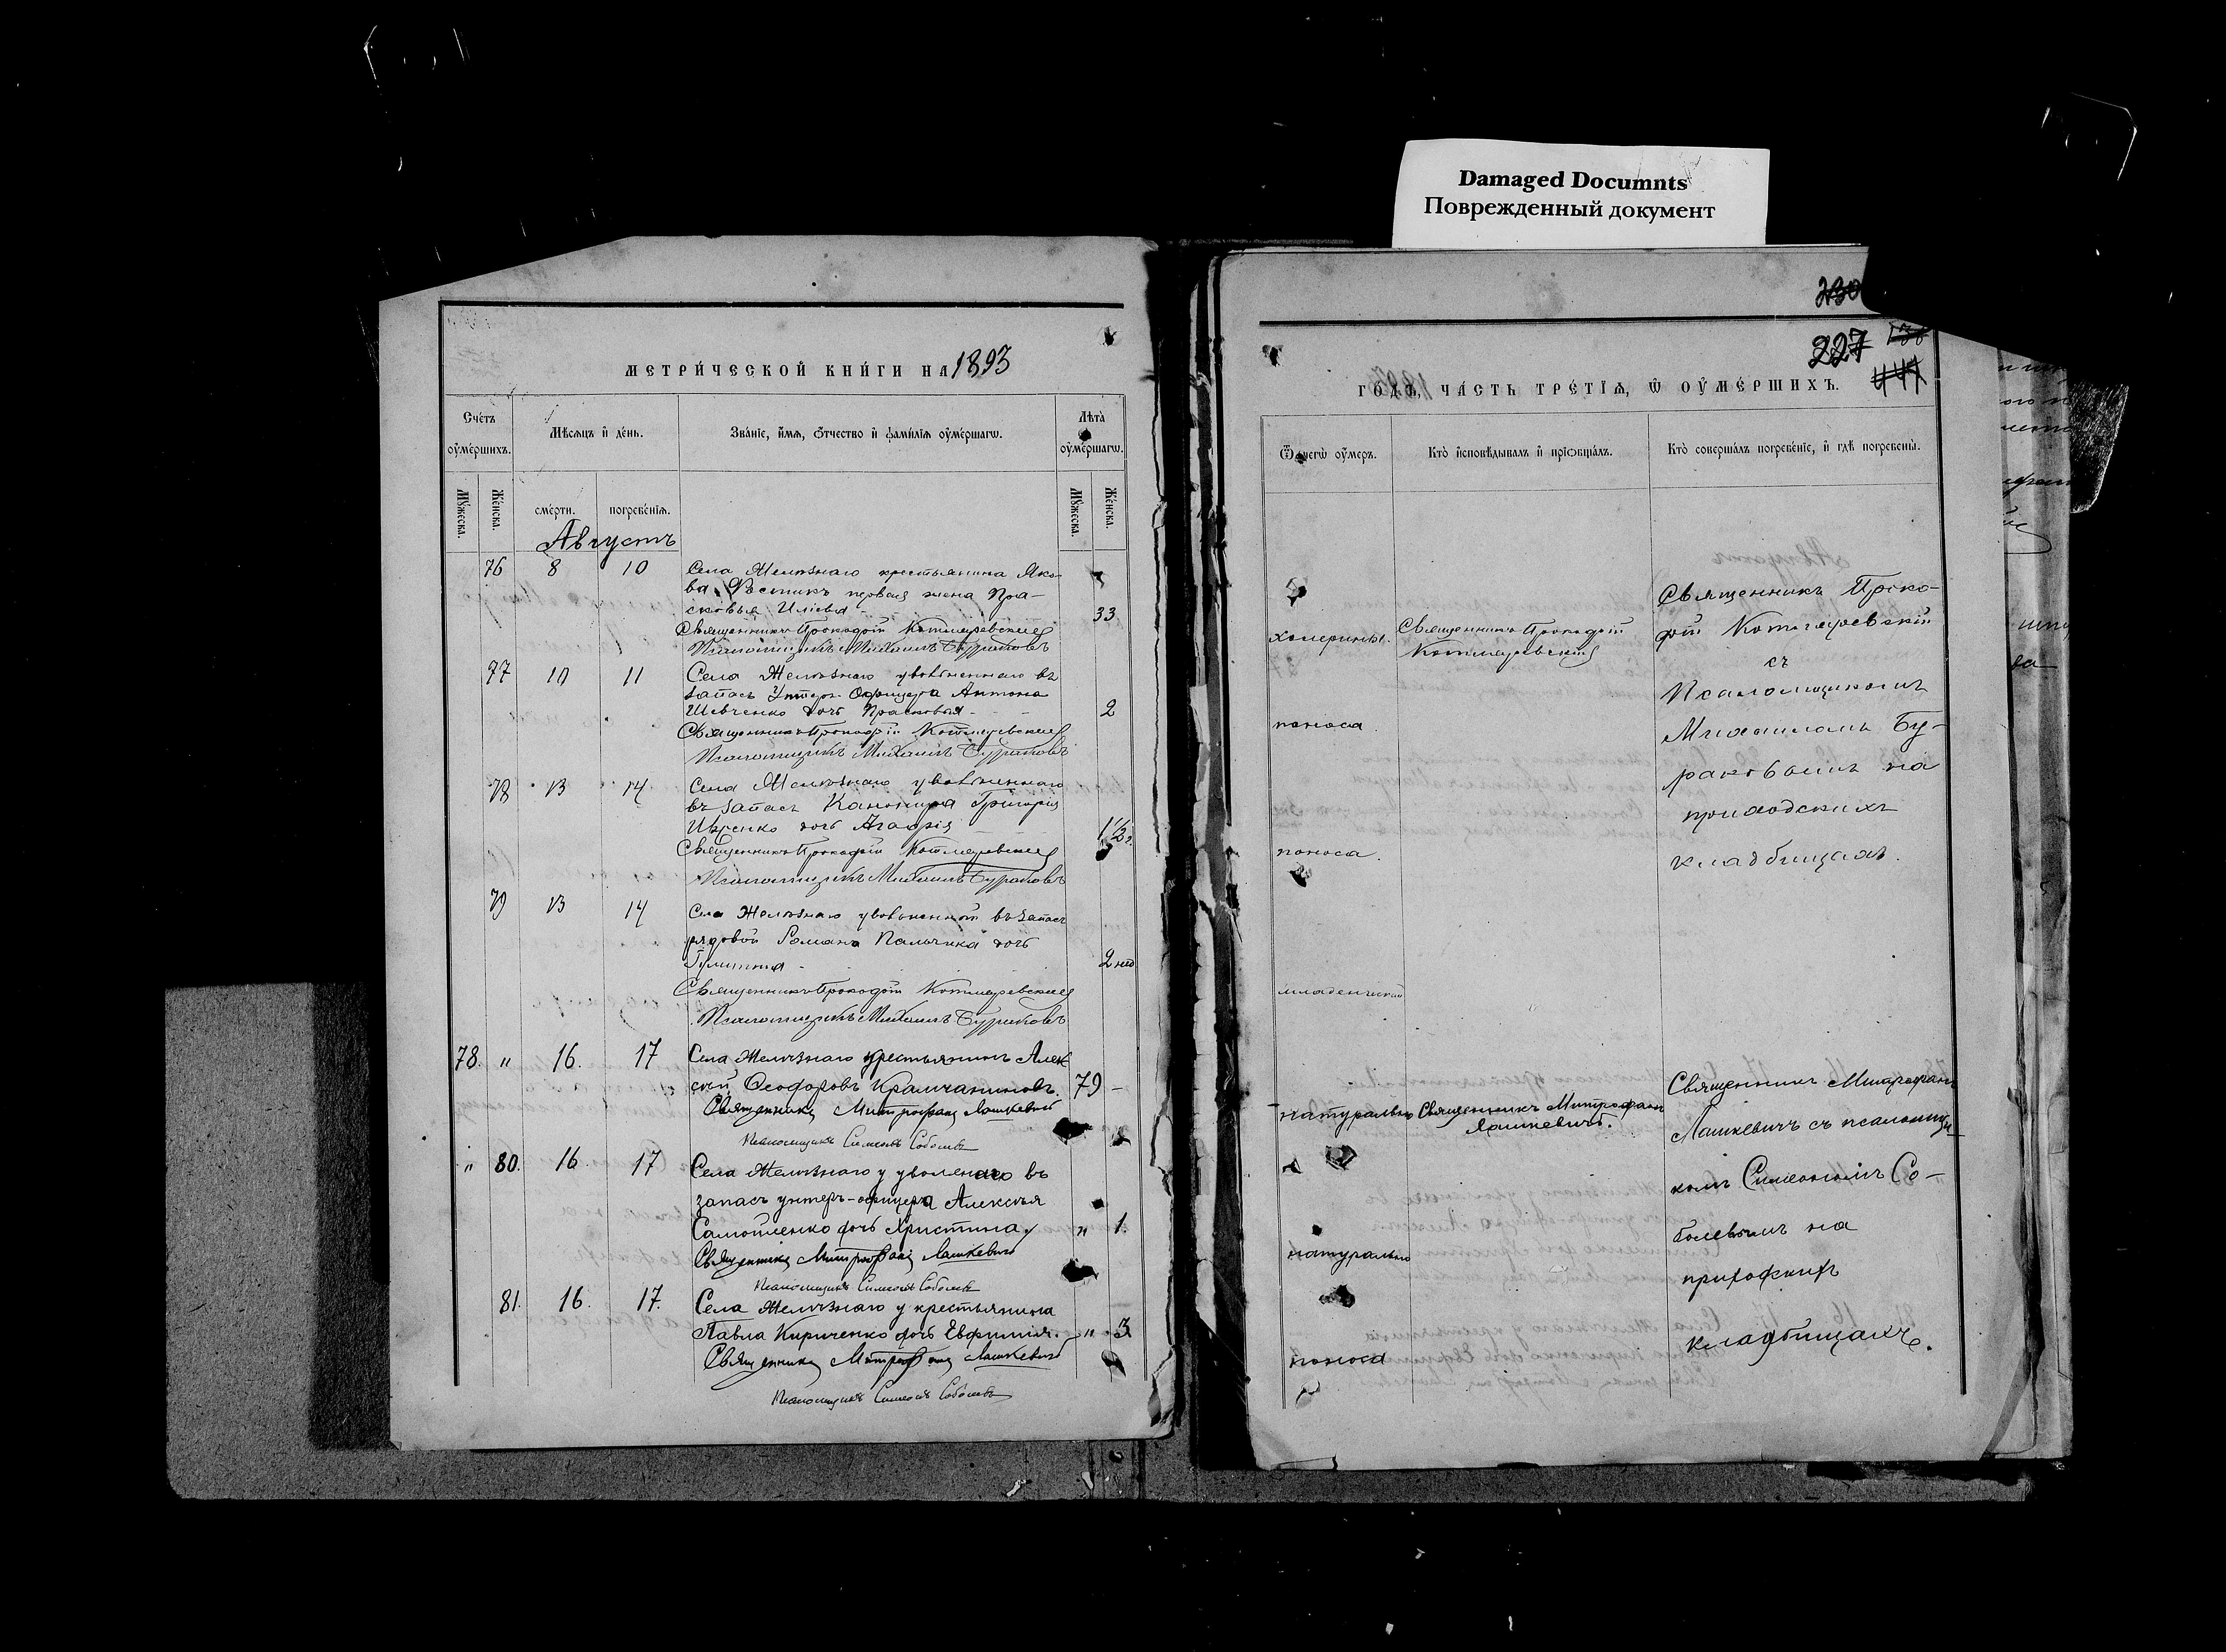 Damaged Documnts
Поврежденный документ
МЕТРИ́ЧЕСКОЙ КНИ́ГИ НА 1893
Сче́тъ оу҆ме́ршихъ.
Мѣ́сѧцъ и҆ де́нь.
Зва́нїе, и҆́мѧ, ѻ҆́тчество и҆ фами́лїѧ оу҆ме́ршагѡ.
Лѣ́та оу҆ме́ршагѡ.
Мꙋ́жеска.
Же́нска.
сме́рти.
погребе́нїѧ.
Мꙋ́жеска.
Же́нска.
Августъ
76 8 10 Села Желѣзнаго крестьянина Яко-
ва первая жена Пра-
сковья Иліева 33
Священникъ Прокофій Котляревскій
Псаломщикъ Михаилъ Бураковъ
77 10 11 Села Желѣзнаго уволеннаго въ
запасъ Унтеръ Офицера Антона
Шевченко дочь Прасковья 2
Священникъ Прокофій Котляревскій
Псаломщикъ Михаилъ Бураковъ
78 13 14 Села Желѣзнаго уволеннаго
въ запасъ Григорія
дочь Агафія 1½ г.
Священникъ Прокофій Котляревскій
Псаломщикъ Михаилъ Бураковъ
79 13 14 Села Желѣзнаго въ запасъ
рядовой Романа Пальчика дочь
2 нед
Священникъ Прокофій Котляревскій
Псаломщикъ Михаилъ Бураковъ
78. " 16. 17 Села Желѣзнаго крестьянинъ Алек
сѣй Ѳеодоровъ Крамчаниновъ. 79 -
Священникъ Митрофанъ Лашкевичъ
Псаломщикъ Симеонъ Соболевъ
" 80. 16. 17 Села Желѣзнаго у уволенаго въ
запасъ унтеръ-офицера Алексѣя
Самойленко дочь Христина " 1.
Священникъ Митрофанъ Лашкевичъ
Псаломщикъ Симеонъ Соболевъ
81. 16. 17. Села Желѣзнаго у крестьянина
Павла Кириченко дочь Евфимія. " 3
Священникъ Митрофанъ Лашкевичъ
Псаломщикъ Симеонъ Соболевъ
230
227
ГО́ДЪ, ЧА́СТЬ ТРЕ́ТЇѦ, Ѡ҆ ОУ҆МЕ́РШИХЪ.
Ѿ чегѡ̀ оу҆́меръ.
Кто̀ и҆сповѣ́дывалъ и҆ прїѡбща́лъ.
Кто̀ соверша́лъ погребе́нїе, и҆ гдѣ̀ погребены̀.
холерины.
Священникъ Прокофій
Котляревскій
Священникъ Проко-
фій Котляревскій
съ
Псаломщикомъ
Михаиломъ Бу-
раковымъ на
приходскихъ
кладбищахъ.
поноса
поноса.
младенческой
натурально
Священникъ Митрофанъ
Лашкевичъ.
Священникъ Митрофанъ
Лашкевичъ съ псаломщи-
комъ Симеономъ Со-
болевымъ на
приходскихъ
кладбищахъ.
натурально
поноса